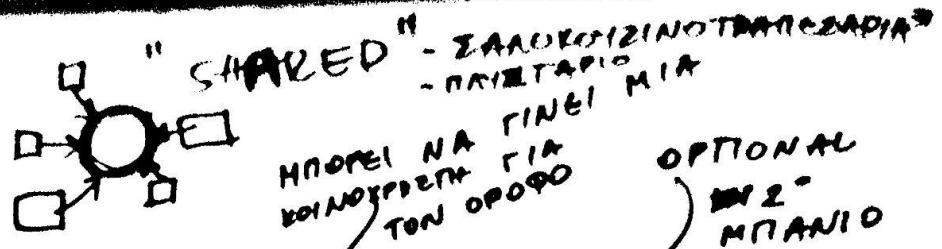 "SHARED" - ΣΑΛΟΚΟΥΖΙΝΟΤΡΑΠΕΖΑΡΙΑ"
- ΠΛΥΣΤΑΡΙΟ
ΜΠΟΡΕΙ ΝΑ ΓΙΝΕΙ ΜΙΑ
ΚΟΙΝΟΧΡΗΣΤΗ ΓΙΑ
ΤΟΝ ΟΡΟΦΟ
OPTIONAL
2°
ΜΠΑΝΙΟ